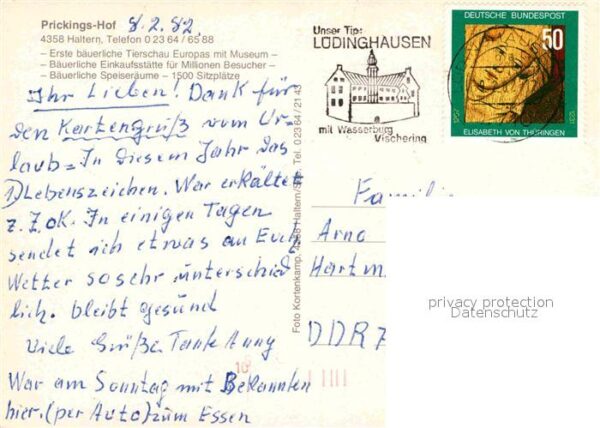 Prickings-Hof 8.2.82.
4358 Haltern, Telefon 0 23 64 / 65 88
– Erste bäuerliche Tierschau Europas mit Museum –
– Bäuerliche Einkaufsstätte für Millionen Besucher –
– Bäuerliche Speiseräume – 1500 Sitzplätze
Ihr Lieben! Dank für
den Kartengruß vom Ur-
laub = In diesem Jahr das
1) Lebenszeichen. War erkältet
z.Z. ok. In einigen Tagen
sendet ich etwas an Euch,
Wetter so sehr unterschied
lich. bleibt gesund
Viele Grüße Tante Anny
War am Sonntag mit Bekannten
hier. (per Auto) zum Essen
Foto Kortenkamp, 4358 Haltern/ Tel. 0 23 64/21 43
Unser Tip:
LÜDINGHAUSEN
mit Wasserburg
Vischering
DEUTSCHE BUNDESPOST
50
ELISABETH VON THÜRINGEN
1207
Familie
Arno
Hartm
DDR 7
privacy protection
Datenschutz